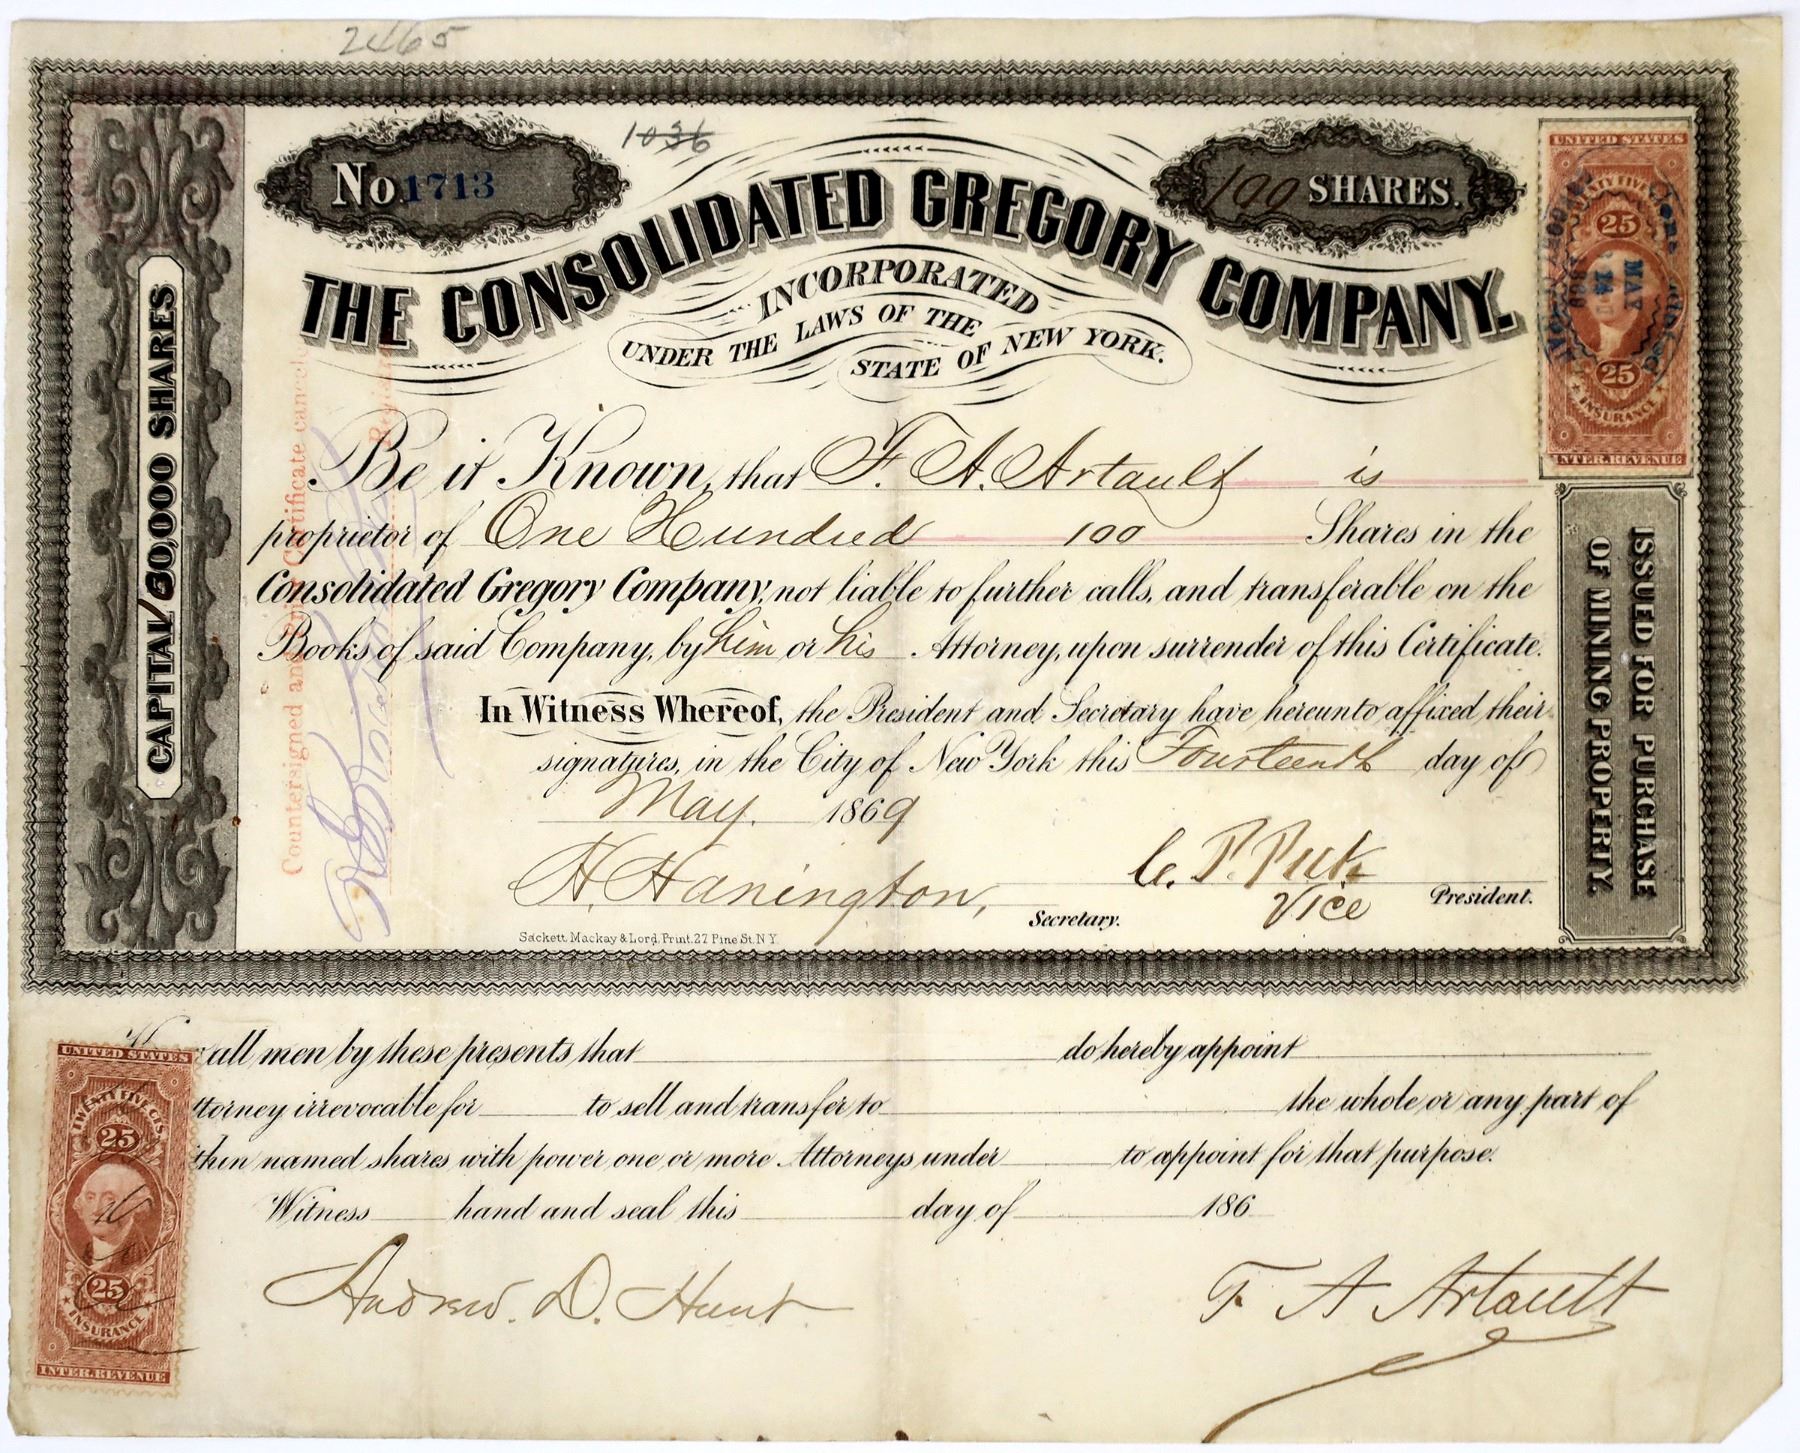 2465
1036
No. 1713
100 SHARES.
THE CONSOLIDATED GREGORY COMPANY.
INCORPORATED
UNDER THE LAWS OF THE
STATE OF NEW YORK.
CAPITAL 50,000 SHARES
UNITED STATES
TWENTY FIVE
25
MAY
25
INSURANCE
INTER. REVENUE
ISSUED FOR PURCHASE
OF MINING PROPERTY.
Countersigned and Certificate
Be it Known, that F. A. Artault is
proprietor of One Hundred 100 Shares in the
Consolidated Gregory Company, not liable to further calls, and transferable on the
Books of said Company, by him or his Attorney, upon surrender of this Certificate.
In Witness Whereof, the President and Secretary have hereunto affixed their
signatures, in the City of New York this Fourteenth day of
May. 1869
H. Hanington, Secretary.
Vice President.
Sackett, Mackay & Lord, Print. 27 Pine St. N.Y.
all men by these presents that do hereby appoint
ttorney irrevocable for to sell and transfer to the whole or any part of
thin named shares with power one or more Attorneys under to appoint for that purpose.
Witness hand and seal this day of 186
Andrew. D. Hunt
F A Artault
UNITED STATES
TWENTY FIVE CTS
25
25
INSURANCE
INTER. REVENUE